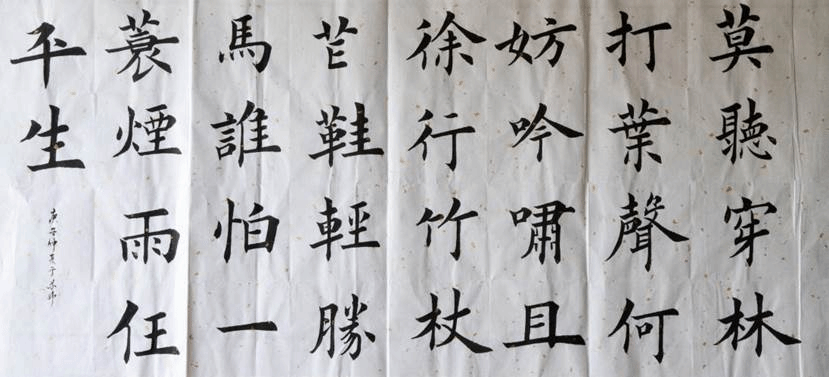 莫聽穿林
打葉聲何
妨吟嘯且
徐行竹杖
芒鞋輕勝
馬誰怕一
蓑煙雨任
平生
庚子仲夏于